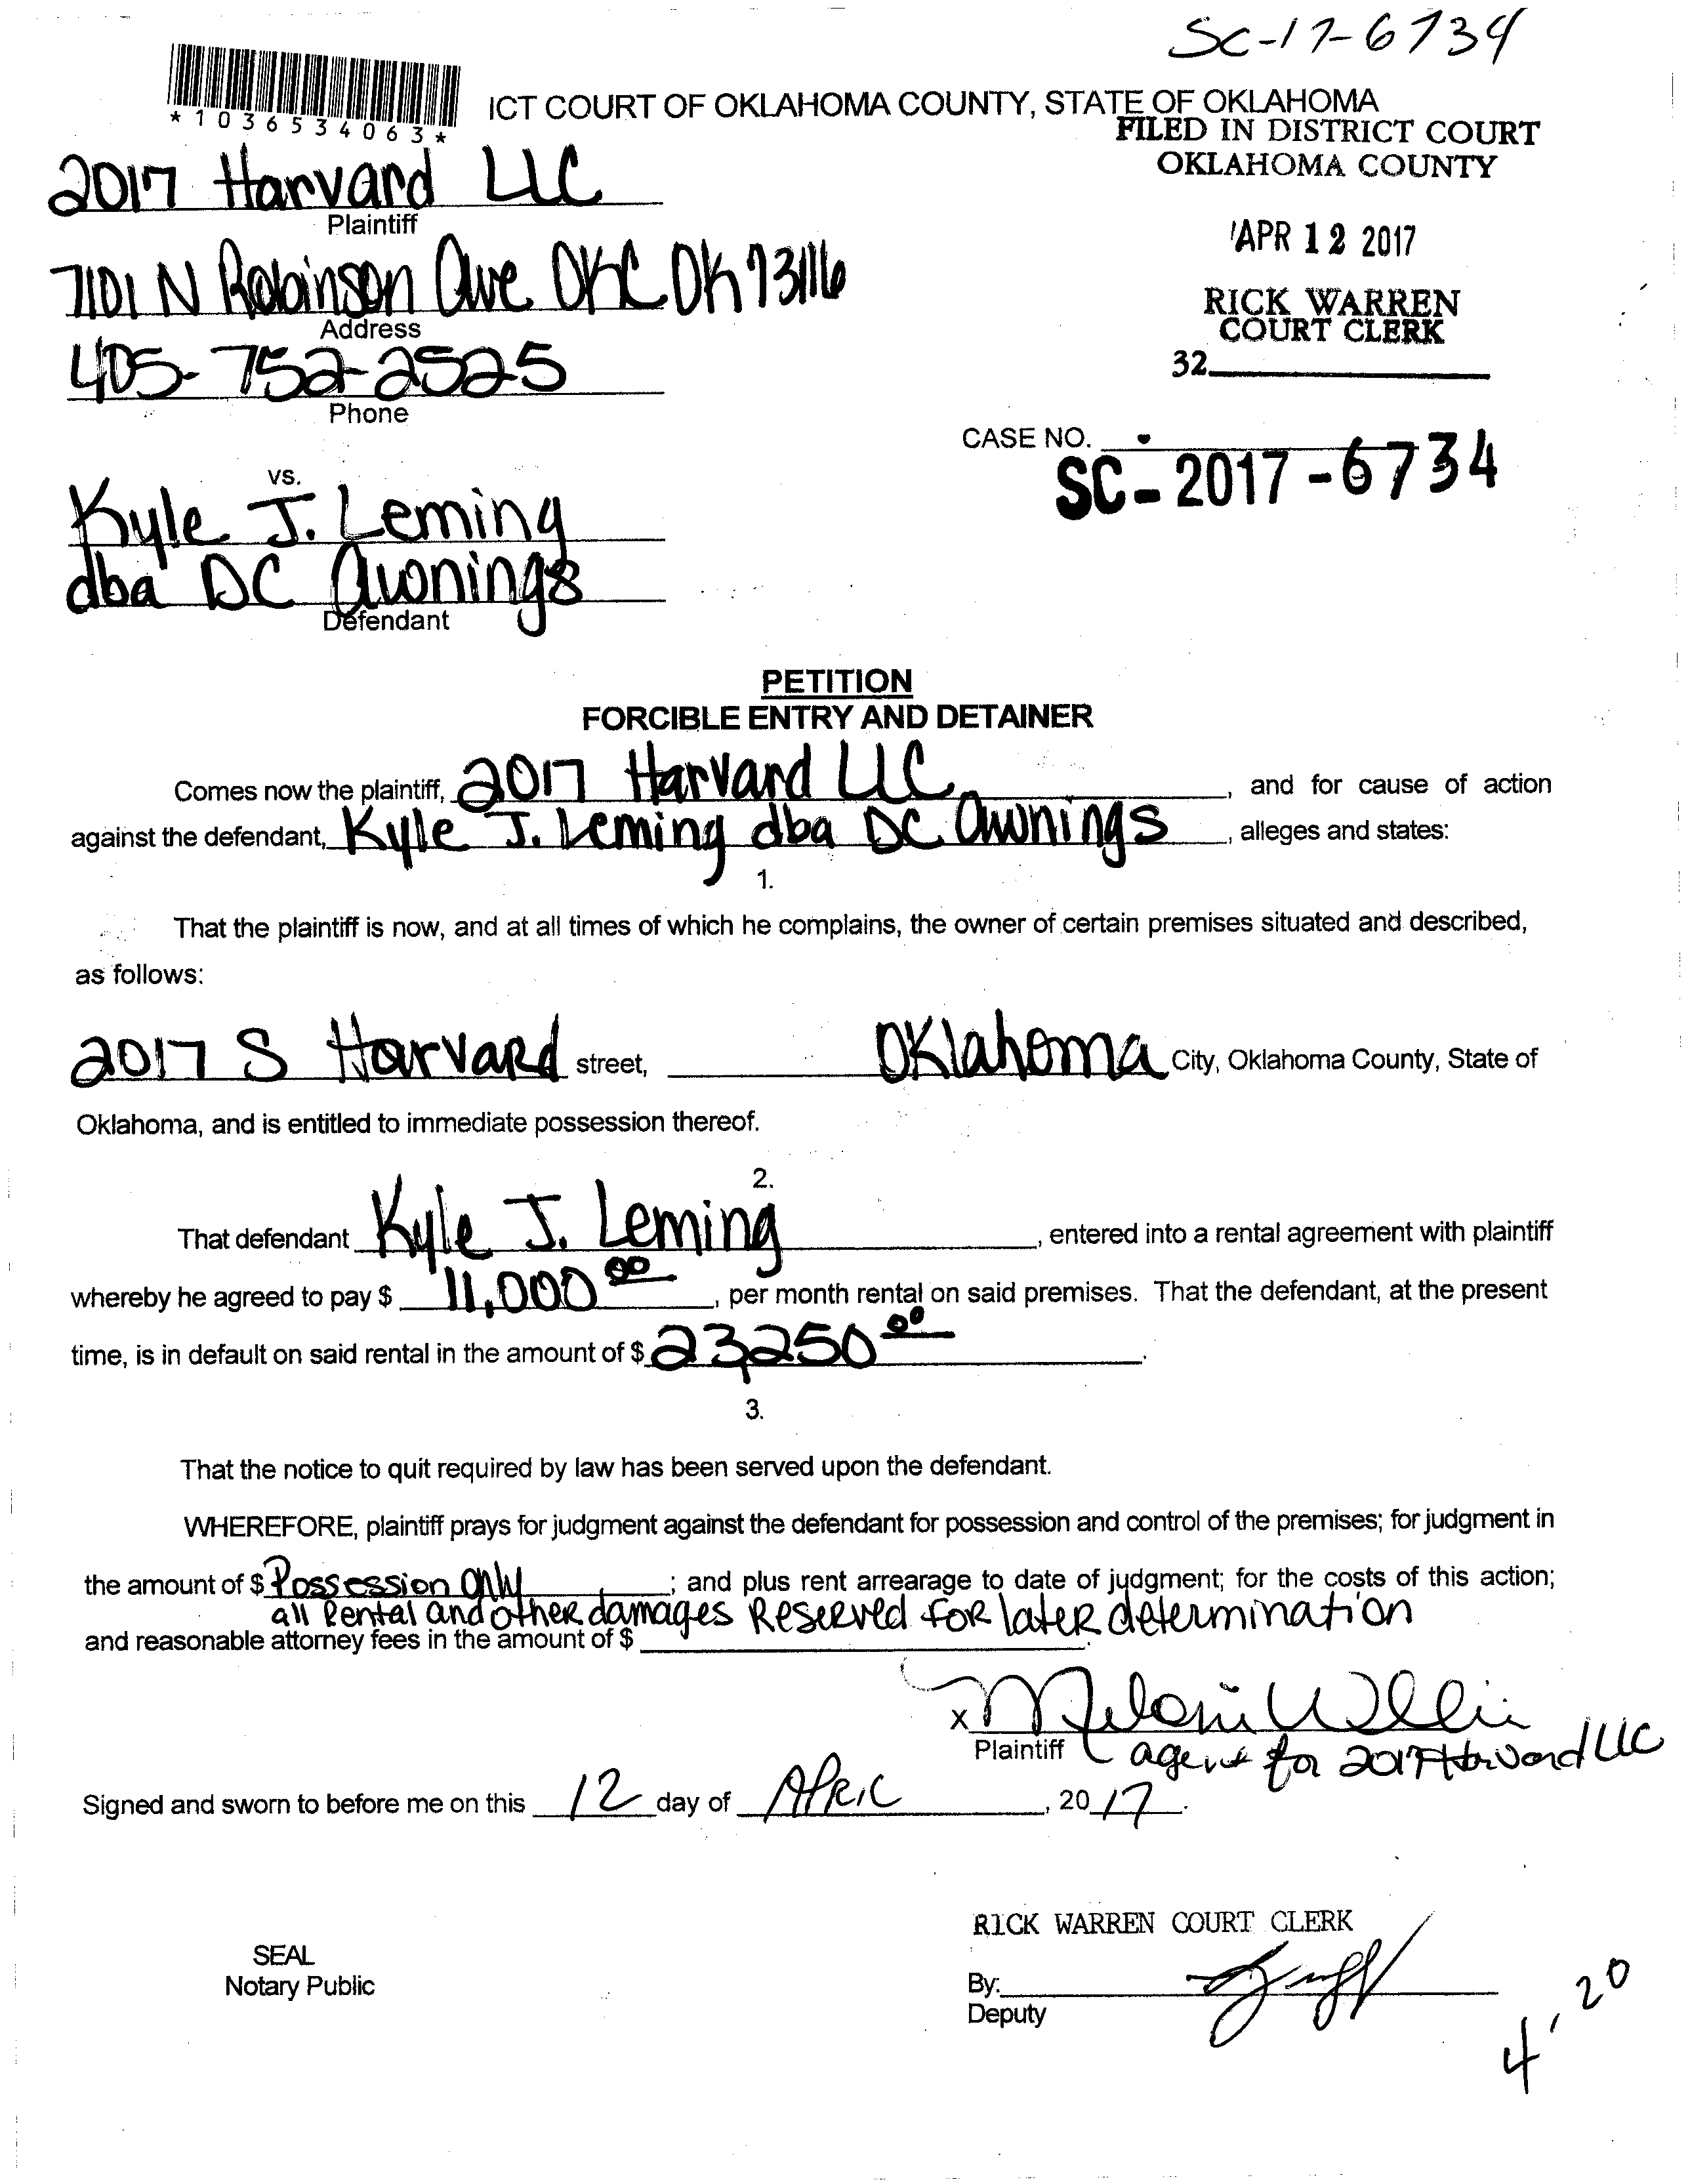 SC-17-6734
*1036534063*
ICT COURT OF OKLAHOMA COUNTY, STATE OF OKLAHOMA
FILED IN DISTRICT COURT
OKLAHOMA COUNTY
2017 Harvard LLC
Plaintiff
APR 12 2017
7101 N Robinson Ave OKC OK 73116
Address
RICK WARREN
COURT CLERK
405-752-2525
Phone
32
CASE NO.
SC-2017-6734
vs.
Kyle J. Leming
dba DC Awnings
Defendant
PETITION
FORCIBLE ENTRY AND DETAINER
Comes now the plaintiff, 2017 Harvard LLC, and for cause of action
against the defendant, Kyle J. Leming dba DC Awnings, alleges and states:
1.
That the plaintiff is now, and at all times of which he complains, the owner of certain premises situated and described,
as follows:
2017 S Harvard street, Oklahoma City, Oklahoma County, State of
Oklahoma, and is entitled to immediate possession thereof.
2.
That defendant Kyle J. Leming, entered into a rental agreement with plaintiff
whereby he agreed to pay $ 11,000 00, per month rental on said premises. That the defendant, at the present
time, is in default on said rental in the amount of $ 23,250 00.
3.
That the notice to quit required by law has been served upon the defendant.
WHEREFORE, plaintiff prays for judgment against the defendant for possession and control of the premises; for judgment in
the amount of $ Possession only; and plus rent arrearage to date of judgment; for the costs of this action;
all Rental and other damages Reserved for later determination
and reasonable attorney fees in the amount of $
x Melani Willi
Plaintiff agent for 2017 Harvard LLC
Signed and sworn to before me on this 12 day of APRIL, 20 17.
RICK WARREN COURT CLERK
SEAL
Notary Public
By:
Deputy
4, 20